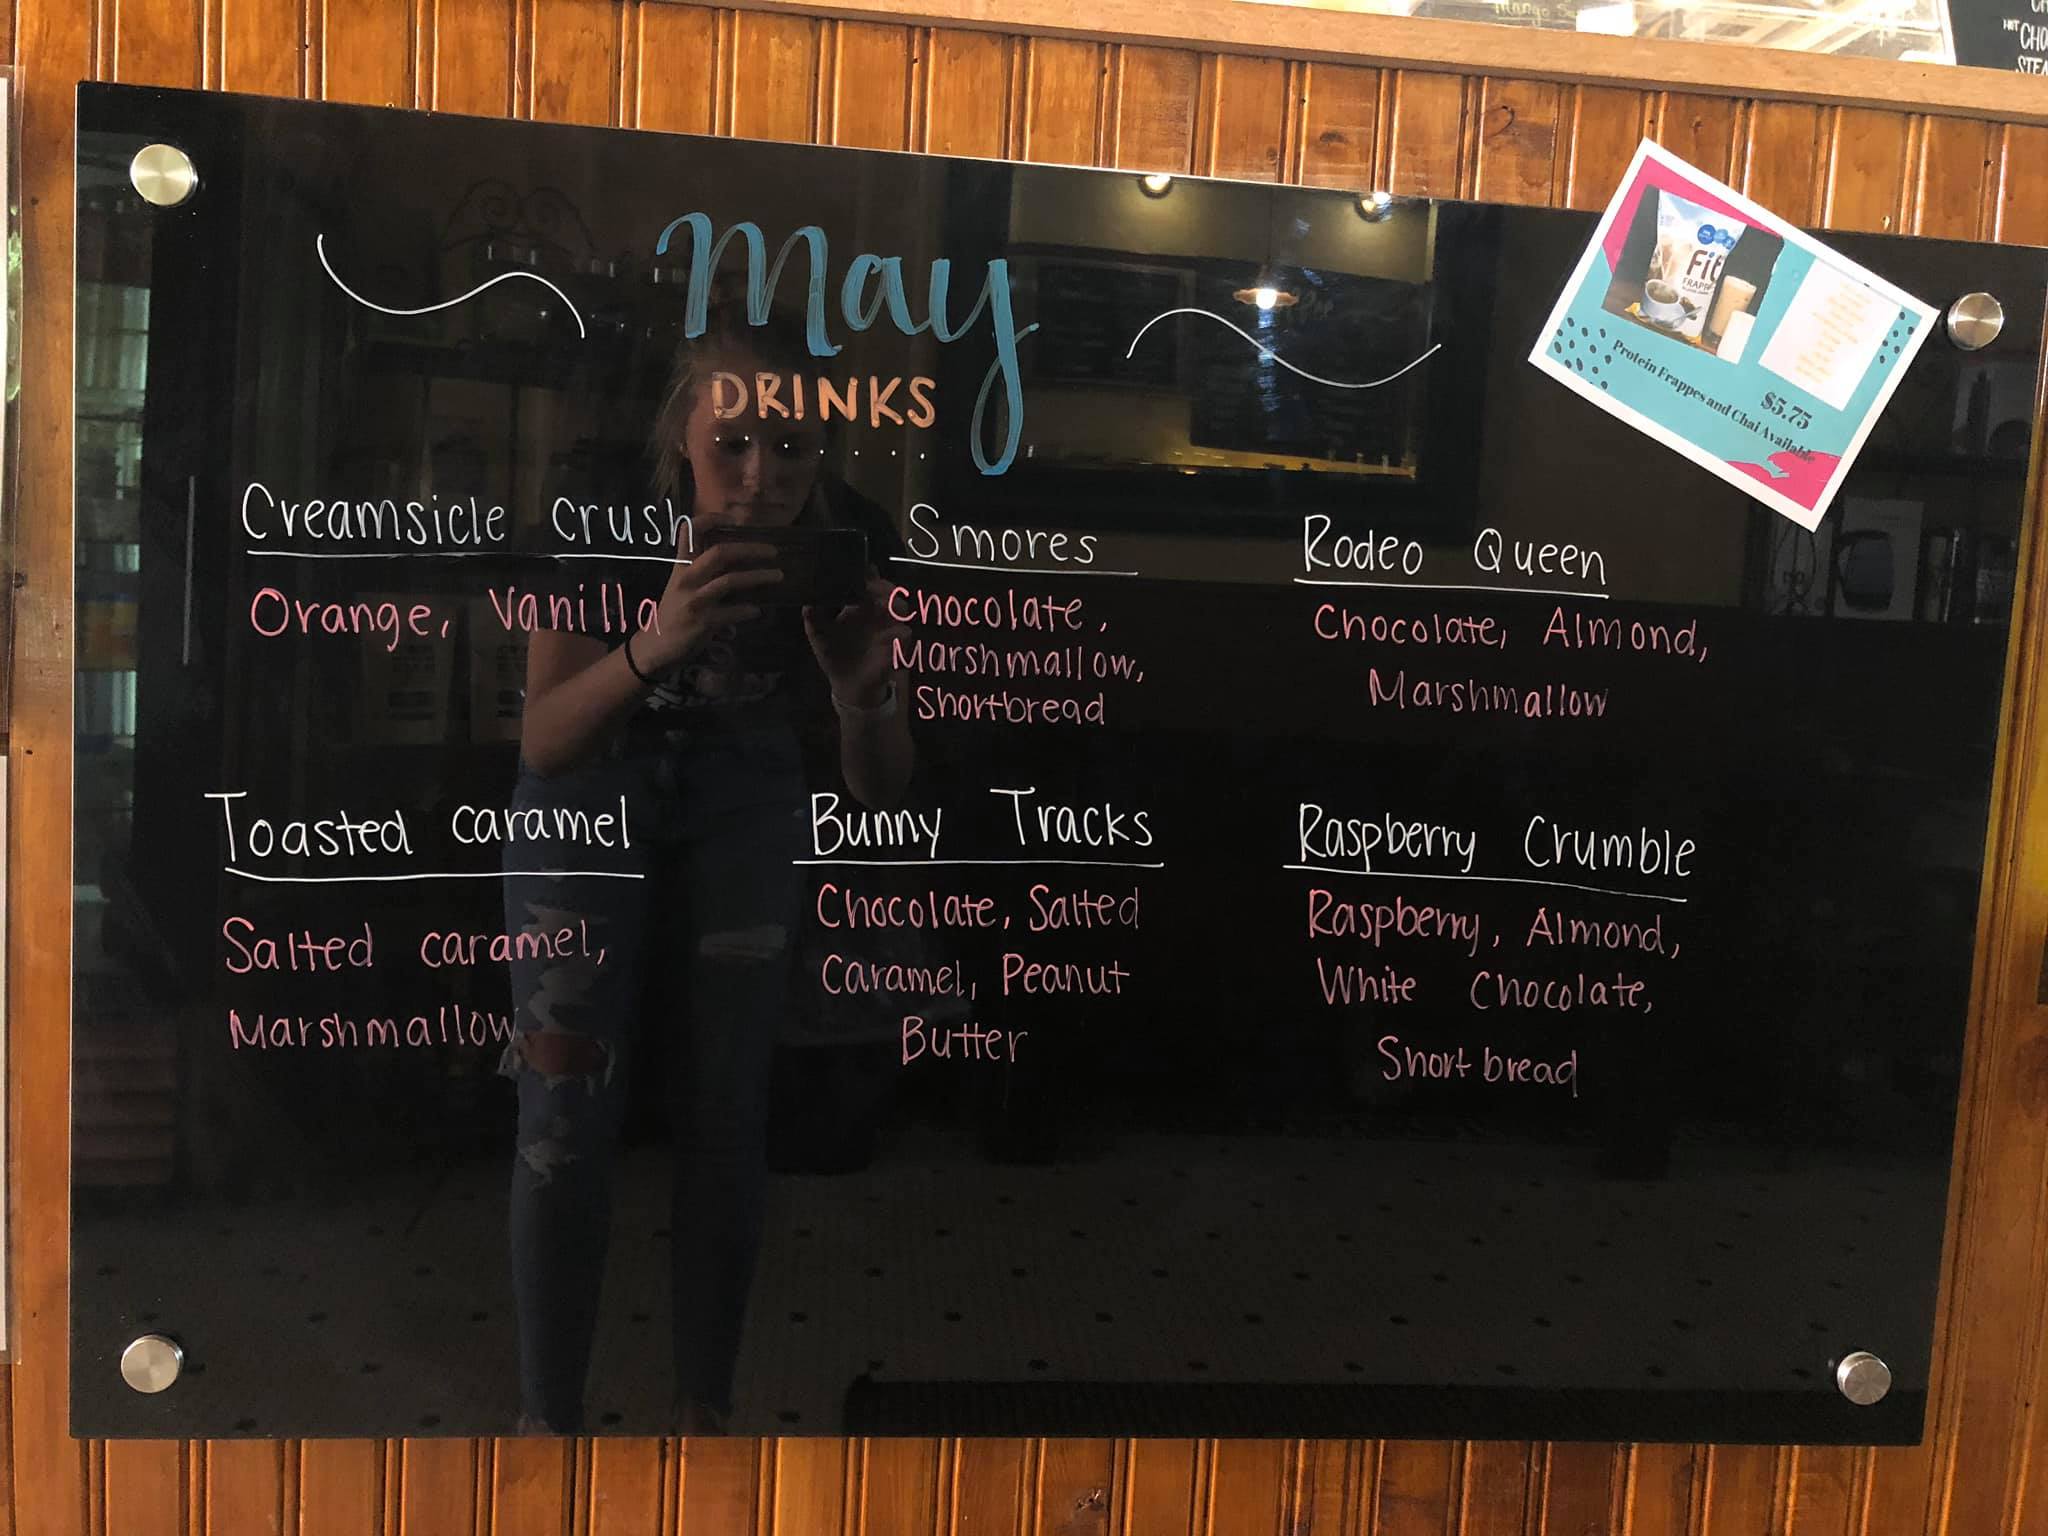 May
DRINKS
Creamsicle crush
Orange, Vanilla
Smores
Chocolate,
Marshmallow,
Shortbread
Rodeo Queen
Chocolate, Almond,
Marshmallow
Toasted caramel
Salted caramel,
Marshmallow
Bunny Tracks
Chocolate, Salted
Caramel, Peanut
Butter
Raspberry Crumble
Raspberry, Almond,
White Chocolate,
Shortbread
Fit
FRAPPE
$5.75
Protein Frappes and Chai Available
Mango
HOT CHO
STEA